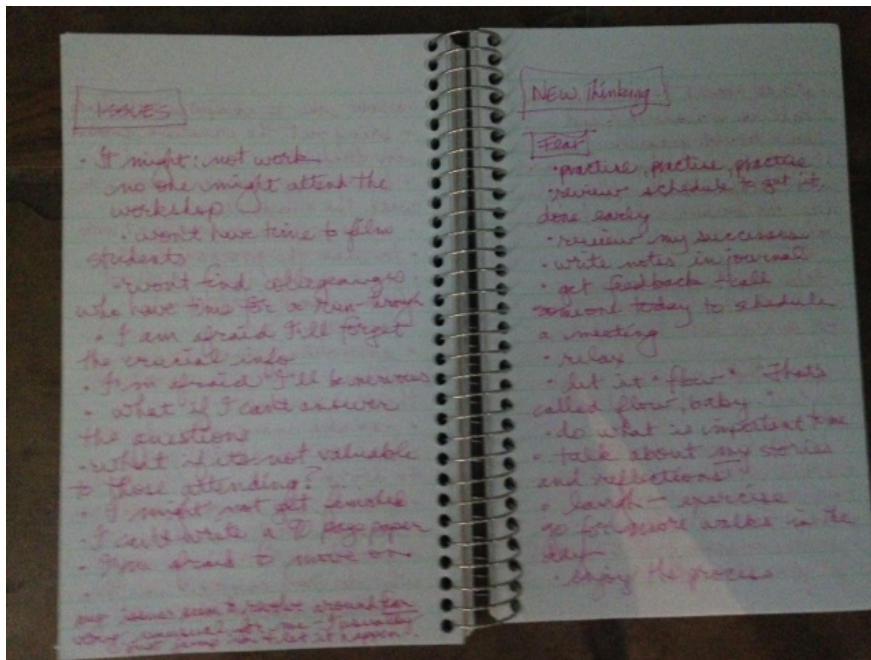 ISSUES
• It might: not work
no one might attend the
workshop
• won't have time to film
students
• won't find
who have time for a run-through
• I am afraid I'll forget
the crucial info
• I'm afraid I'll be nervous
• what if I can't answer
the questions
• what if its not valuable
to those attending?
• I might not get
• I can't write a page paper
• I'm afraid to move on
my issues seem to revolve around fear
very unusual for me - I usually
just jump in & let it happen.
NEW Thinking
Fear
• practise, practise, practise
• review schedule to get it
done early
• review my successes
• write notes in journal
• get feedback - call
someone today to schedule
a meeting
• relax
• let it "flow" "That's
called flow, baby"
• do what is important to me
• talk about my stories
and reflections
• laugh - exercise
go for more walks in the
day
• enjoy the process